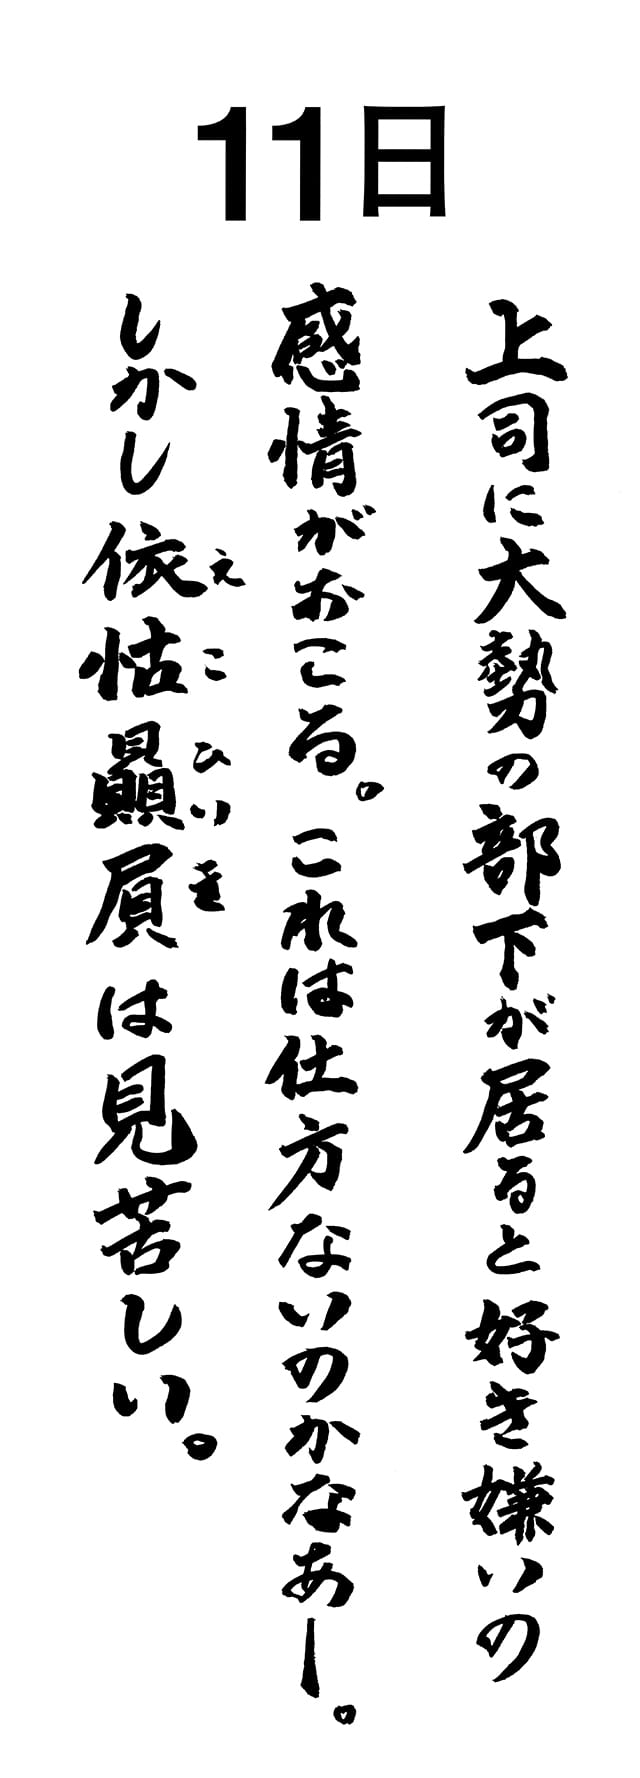 11日
上司に大勢の部下が居ると好き嫌いの
感情がおこる。これは仕方ないのかなあー。
しかし依怙贔屓は見苦しい。
えこひいき